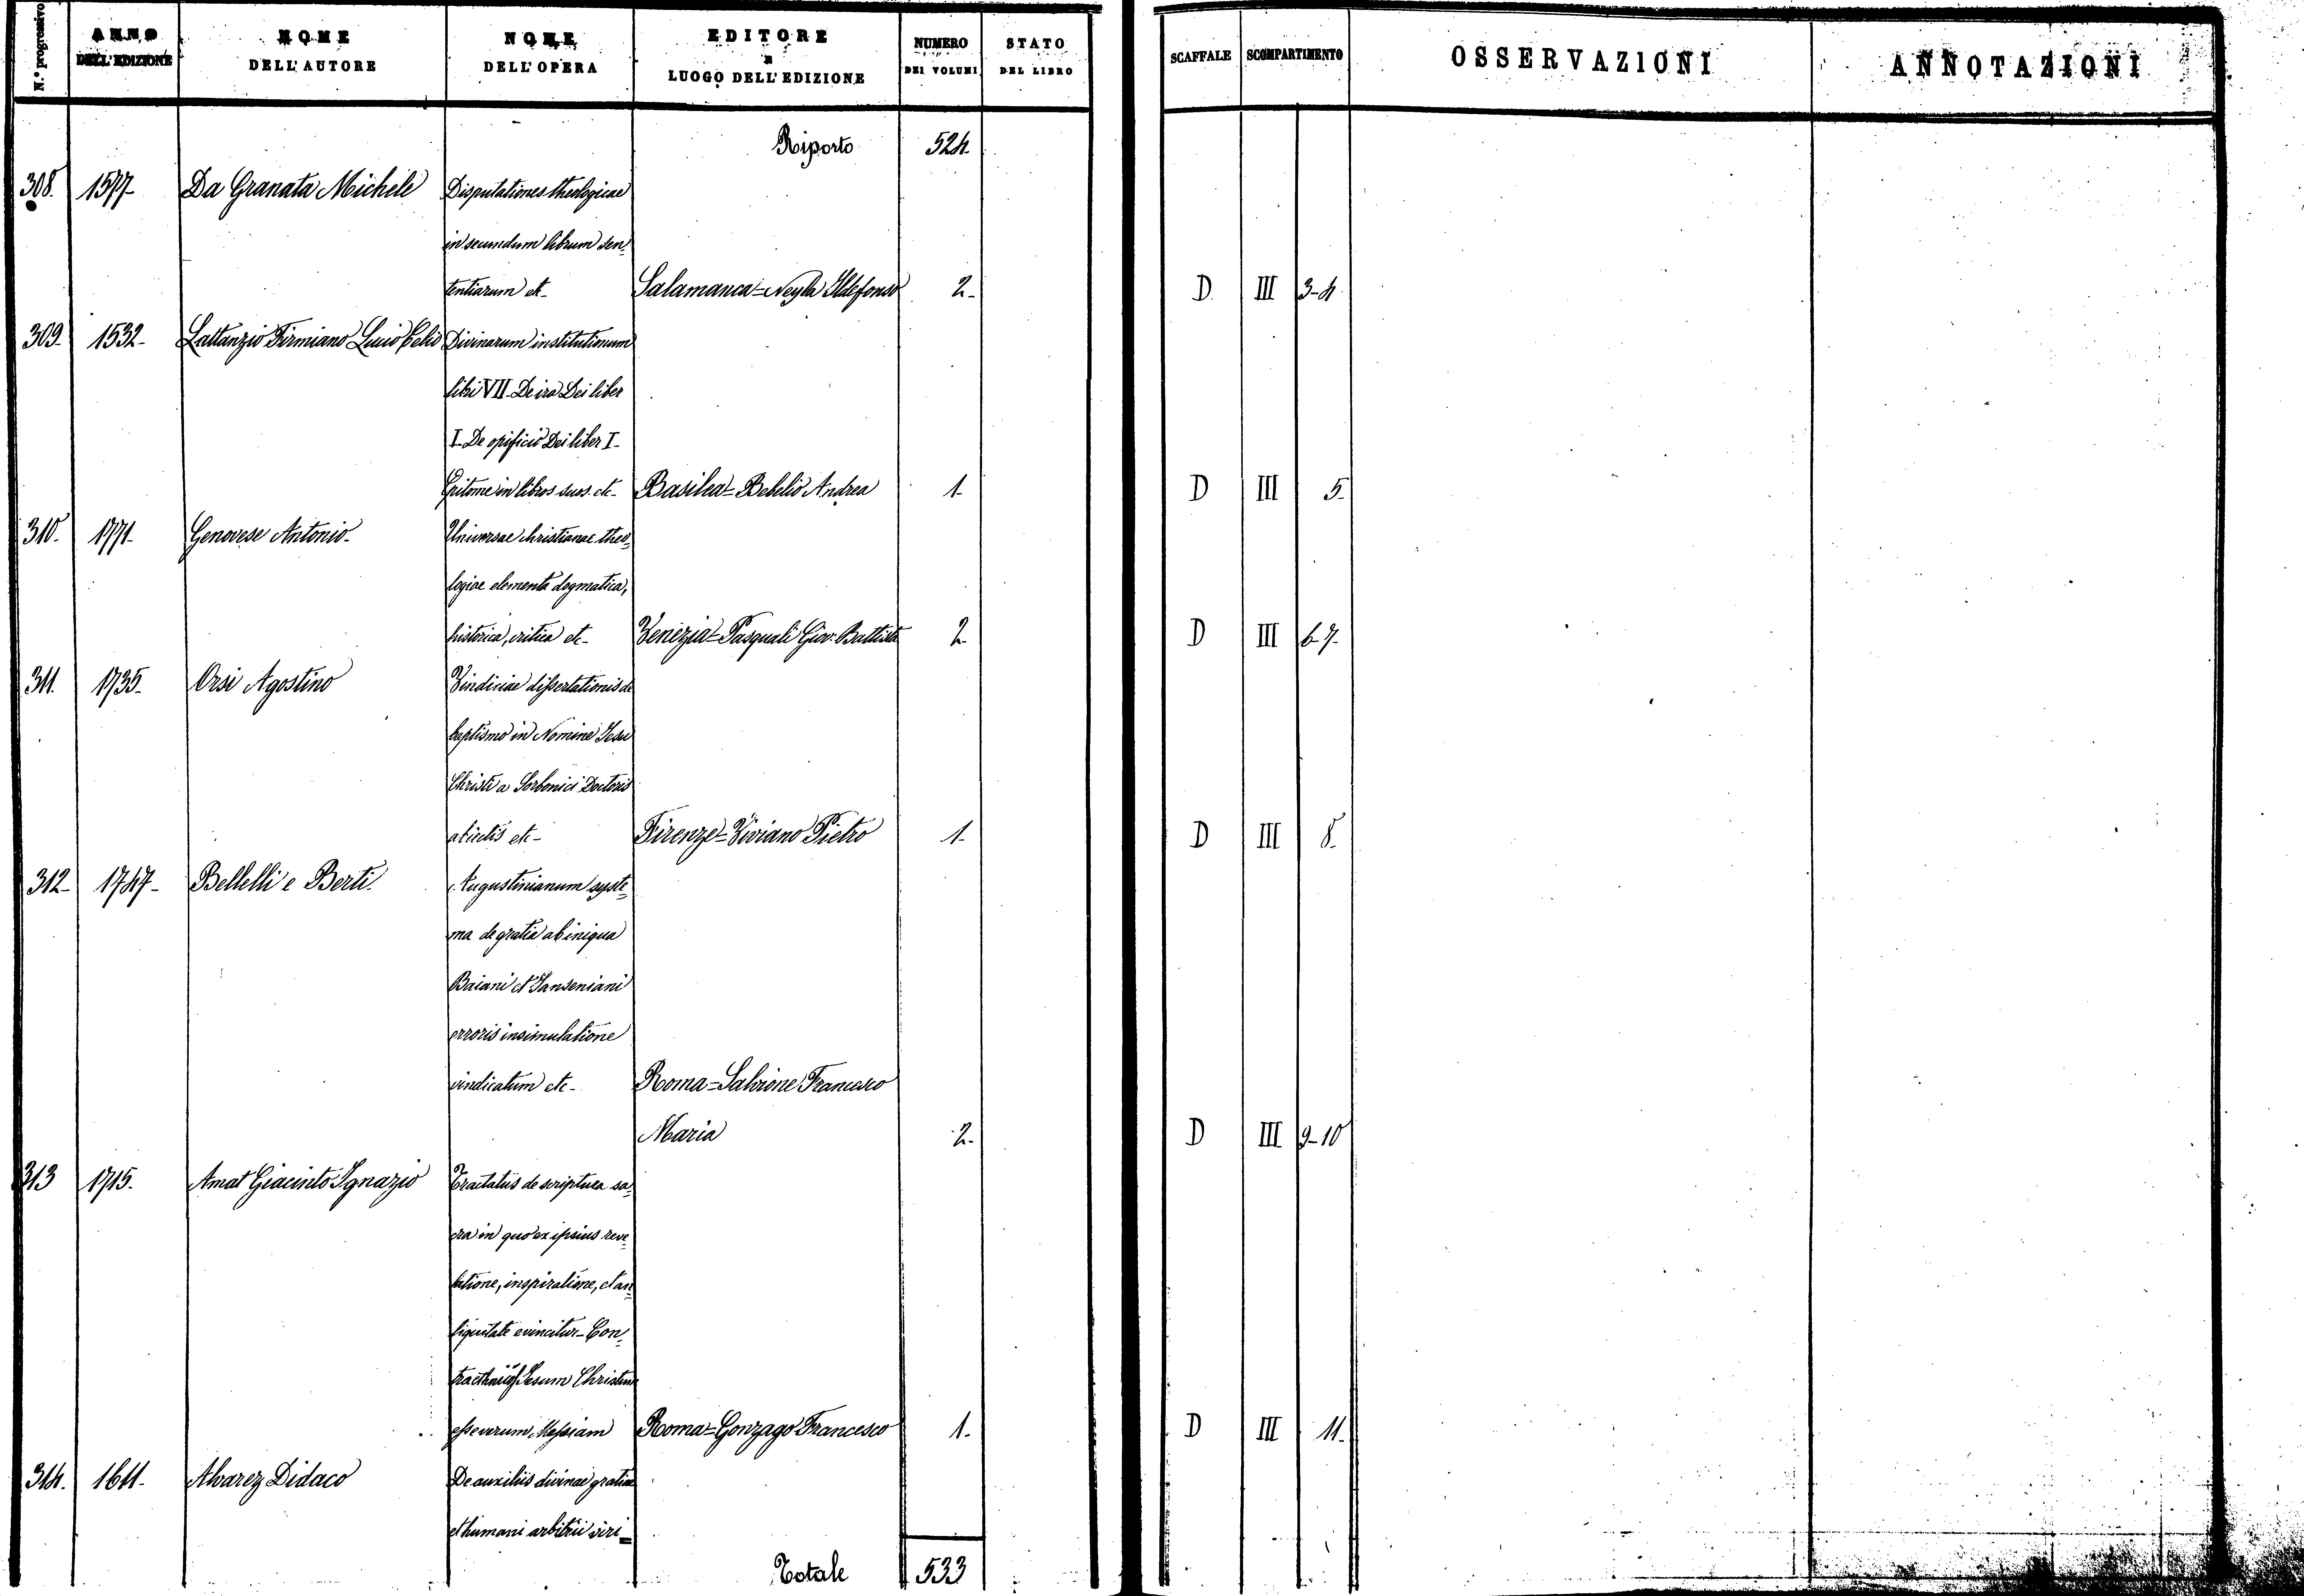 N.° progressivo ANNO DELL'EDIZIONE NOME DELL'AUTORE NOME DELL'OPERA EDITORE E LUOGO DELL'EDIZIONE NUMERO DEI VOLUMI STATO DEL LIBRO SCAFFALE SCOMPARTIMENTO OSSERVAZIONI ANNOTAZIONI
Riporto 524
308. 1577- Da Granata Michele Disputationes theologicae
in secundum librum sen-
tentiarum et- Salamanca=Neyla Ildefonso 2- D III 3-4
309- 1532- Lattanzio Firmiano Lucio Celio Divinarum institutionum
libri VII-De ira Dei liber
I-De opificio Dei liber I-
Epitome in libros suos. etc- Basilea=Bebelio Andrea 1- D III 5-
310- 1771- Genovese Antonio- Universae christianae theo-
logiae elementa dogmatica,
historica, critica etc- Venezia=Pasquali Giov: Battista 2- D III 6-7-
311. 1735- Orsi Agostino Vindiciae dissertationis de
baptismo in Nomine Jesu
Christi a Sorbonici Doctoris
etc- Firenze=Viviano Pietro 1- D III 8-
312- 1747- Bellelli e Berti. Augustinianum syste-
ma de gratia ab iniqua
Baiani et Janseniani
erroris insimulatione
vindicatum etc- Roma=Salvione Francesco
Maria 2- D III 9-10
313 1715- Amat Giacinto Ignazio Tractatus de scriptura sa-
cra in quo ex ipsius reve-
latione, inspiratione, et an-
tiquitate evincitur-Con-
Jesum Christum
esse verum Messiam Roma=Gonzago Francesco 1- D III 11.
314. 1611- Alvarez Didaco De auxiliis divinae gratiae
et humani arbitrii viri=
Totale 533